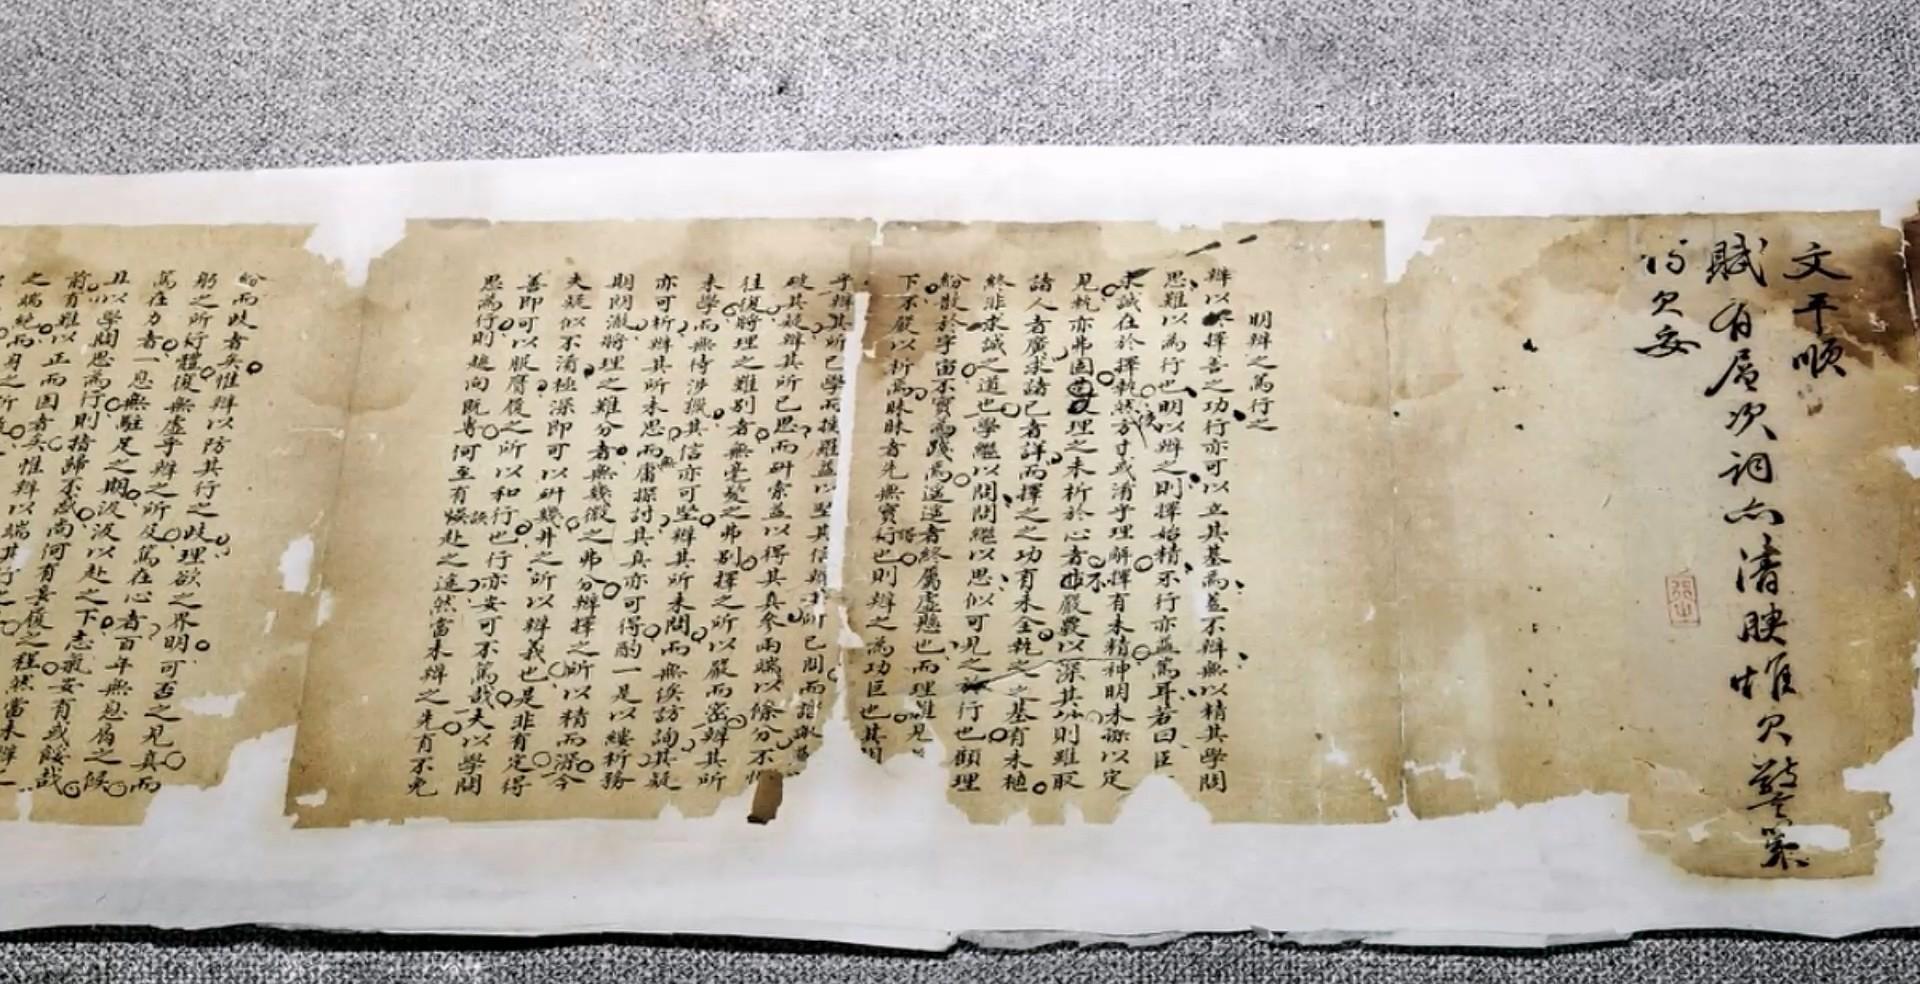 文平順
賦有層次詞亦清腴惟欠警策
欠妥
明辯之篤行之
辯以終擇善之功行亦可以立其基焉蓋不辯無以精其學問
思難以為行也明以辯之則擇始精而行亦益篤耳若曰臣
求誠在於擇執然方寸或淆乎理解擇有未精神明未深以定
見執亦弗固理之未析於心者不嚴以深其功則雖取
諸人者廣求諸己者詳而擇之之功有未全執之之基有未植
終非求誠之道也學繼以問問繼以思似可見之於行也顧理
紛散於宇宙不實為踐焉遥遥者終屬虛懸也而理雖見
下不嚴以析焉昧昧者先無實行也則辯之為功巨也其
乎辯其所已學而擴雖益以堅其信辯其所已問而諮諏
破其疑辯其所已思而研索益以得其真參兩端以條分不
往復將理之難別者無毫髮之弗別擇之所以嚴而密辯其所
未學而無待涉獵其信亦可堅辯其所未問而無俟訪詢其疑
亦可析辯其所未思而庸探討其真亦可得酌一是以縷析務
期明澈將理之難分者無幾微之弗分辯擇之所以精而深今
夫疑似不淆極深即可以研幾丼之所以辯義也是非有定得
善即可以服膺履之所以和行也行亦安可不篤哉夫以學問
思為行則趨向既專何至有誤赴之途然當未辯之先有不免
紛而歧者矣惟辯以防其行之歧理欲之界明可否之見真而
躬之所行體復無虛乎辯之所及篤在心者百年無息荒之候
篤在力者一息無駐足之期汲汲以赴之下志氣安有或餒哉
且以學問思為行則指歸不惑尚何有妄履之程然當未辯之
前有難以正而固者矣惟辯以端其行之
之端純而身之所